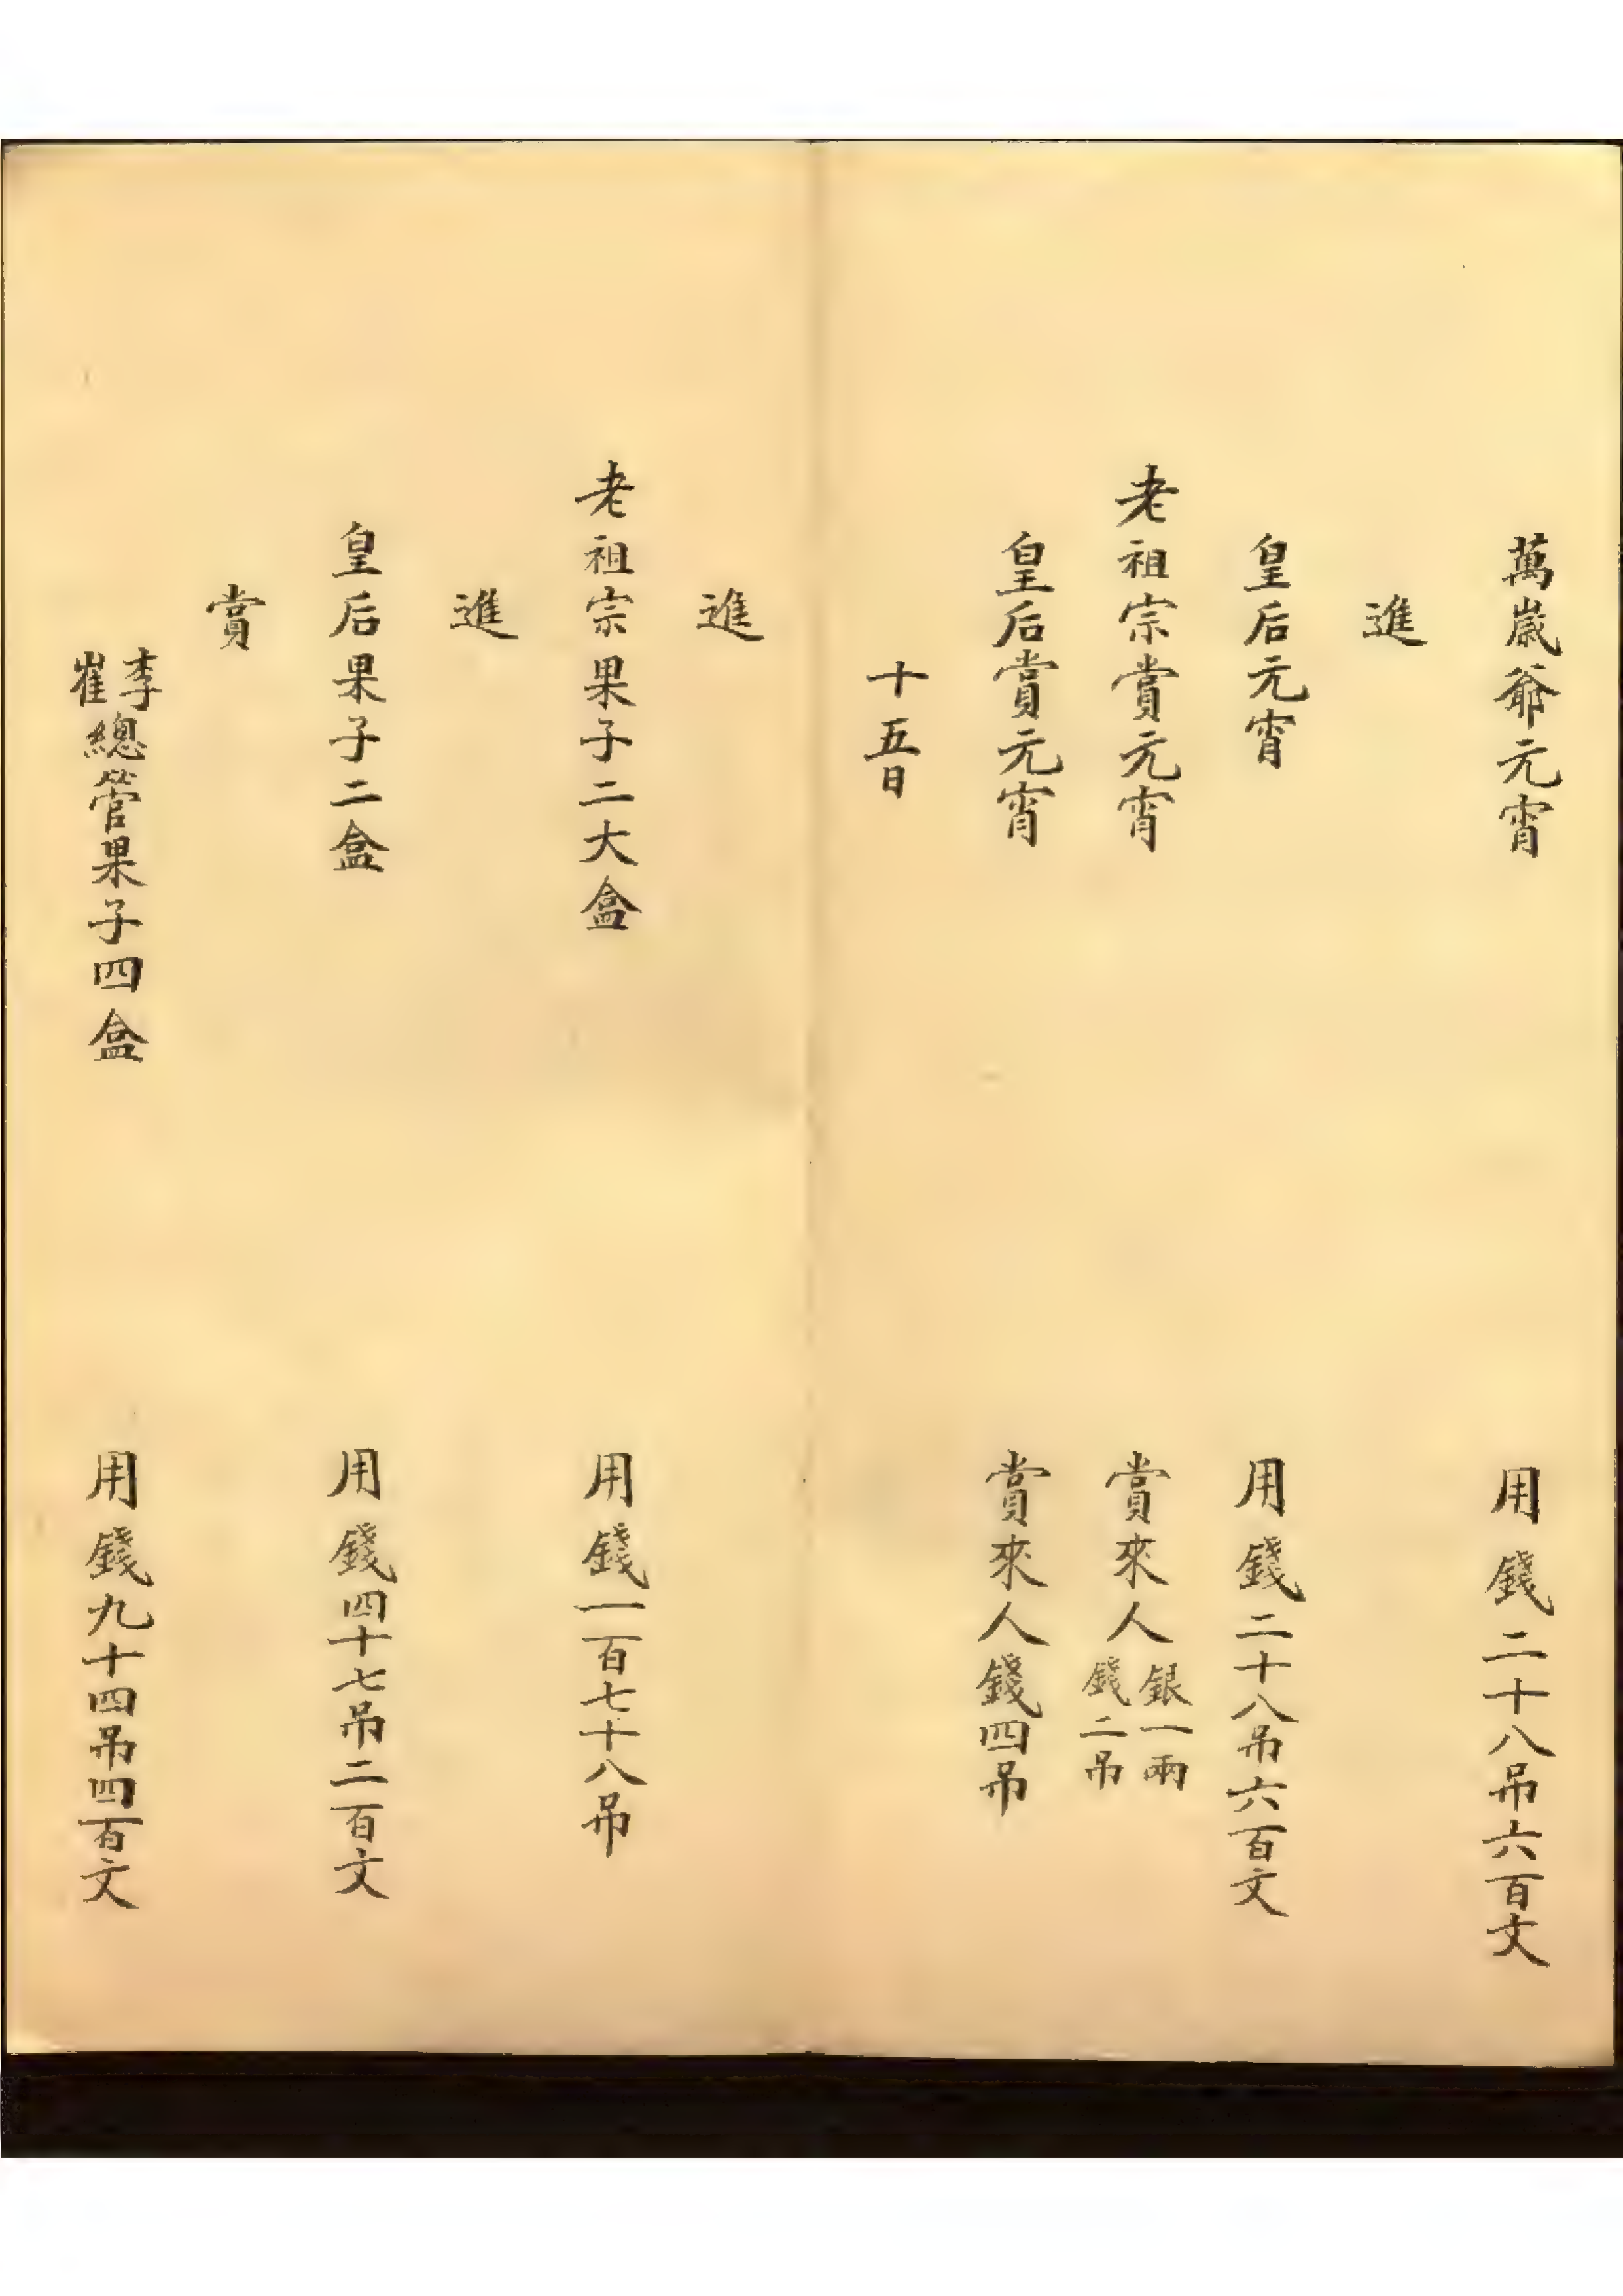 萬歲爺元宵　用錢二十八吊六百文
進
皇后元宵　用錢二十八吊六百文
老祖宗賞元宵　賞來人銀一兩錢二吊
皇后賞元宵　賞來人錢四吊
十五日
進
老祖宗果子二大盒　用錢一百七十八吊
進
皇后果子二盒　用錢四十七吊二百文
賞
李崔總管果子四盒　用錢九十四吊四百文